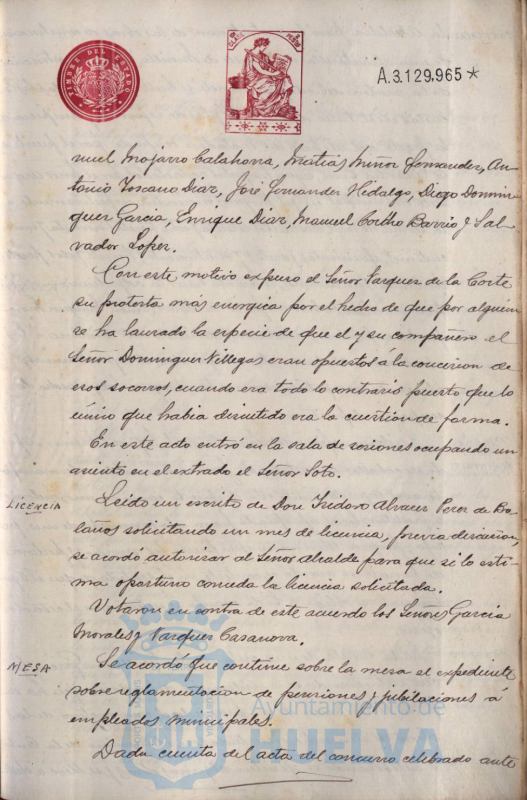 TIMBRE DEL ESTADO
CLASE
A.3.129.965*
nuel Mojarro Calahorra, Matias Miñor Fernandez, An-
tonio Toscano Diaz, José Fernandez Hidalgo, Diego Domin-
guez Garcia, Enrique Diaz, Manuel Corbo Barrio y Sal-
vador Lopez.
Con este motivo expuso el Señor Vazquez de la Corte
su protesta más energica por el hecho de que por alguien
se ha lanzado la especie de que el y su compañero el
Señor Dominguez Villegas eran opuestos á la concesion de
esos socorros, cuando era todo lo contrario puesto que lo
único que habia discutido era la cuestion de forma.
En este acto entró en la sala de sesiones ocupando un
asiento en el extrado el Señor Soto.
LICENCIA
Leido un escrito de Don Isidoro Alvarez Perez de Bo-
laños solicitando un mes de licencia, previa discusion,
se acordó autorizar al Señor alcalde para que si lo esti-
ma oportuno conceda la licencia solicitada.
Votaron en contra de este acuerdo los Señores Garcia
Morales y Vazquez Casanova.
MESA
Se acordó que continue sobre la mesa el expediente
sobre reglamentacion de pensiones y jubilaciones á
empleados municipales.
Dada cuenta del acta del concurso celebrado ante
Ayuntamiento de
HUELVA